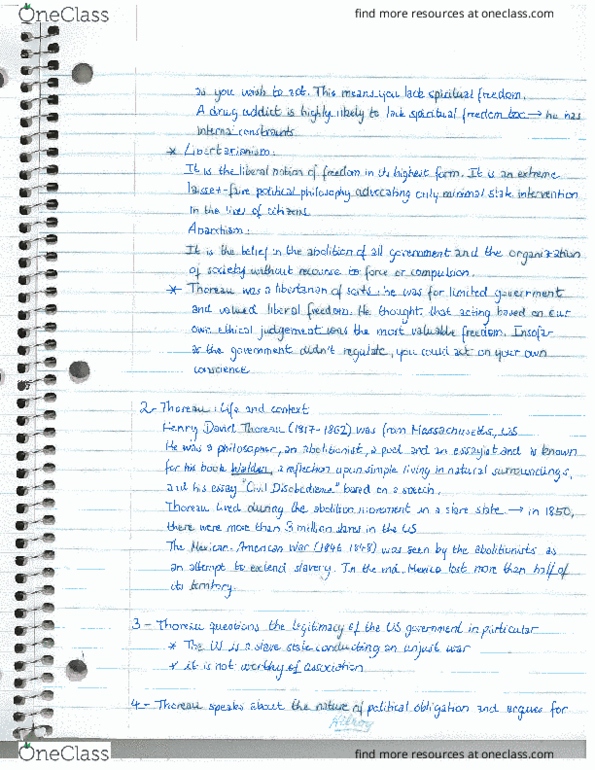 OneClass
find more resources at oneclass.com
as you wish to act. This means you lack spiritual freedom.
A drug addict is highly likely to lack spiritual freedom too → he has
internal constraints.
* Libertarianism:
It is the liberal notion of freedom in its highest form. It is an extreme
laisset-faire political philosophy advocating only minimal state intervention
in the lives of citizens
Anarchism:
It is the belief in the abolition of all government and the organization
of society without recourse to force or compulsion.
* Thoreau was a libertarian of sorts: he was for limited government
and valued liberal freedom. He thought that acting based on our
own ethical judgement was the most valuable freedom. Insofar
as the government didn't regulate, you could act on your own
conscience
2- Thoreau: life and context
Henry David Thoreau (1817-1862) was from Massachusetts, US
He was a philosopher, an abolitionist, a poet and an essayist and is known
for his book Walden, a reflection upon simple living in natural surroundings,
and his essay "Civil Disobedience" based on a speech.
Thoreau lived during the abolition movement in a slave state → in 1850,
there were more than 3 million slaves in the US
The Mexican-American war (1846-1848) was seen by the abolitionists as
an attempt to extend slavery. In the end, Mexico lost more than half of
its territory.
3- Thoreau questions the legitimacy of the US government in particular
* The US is a slave state conducting an unjust war
* it is not worthy of association
4- Thoreau speaks about the nature of political obligation and argues for
Hilroy
OneClass
find more resources at oneclass.com